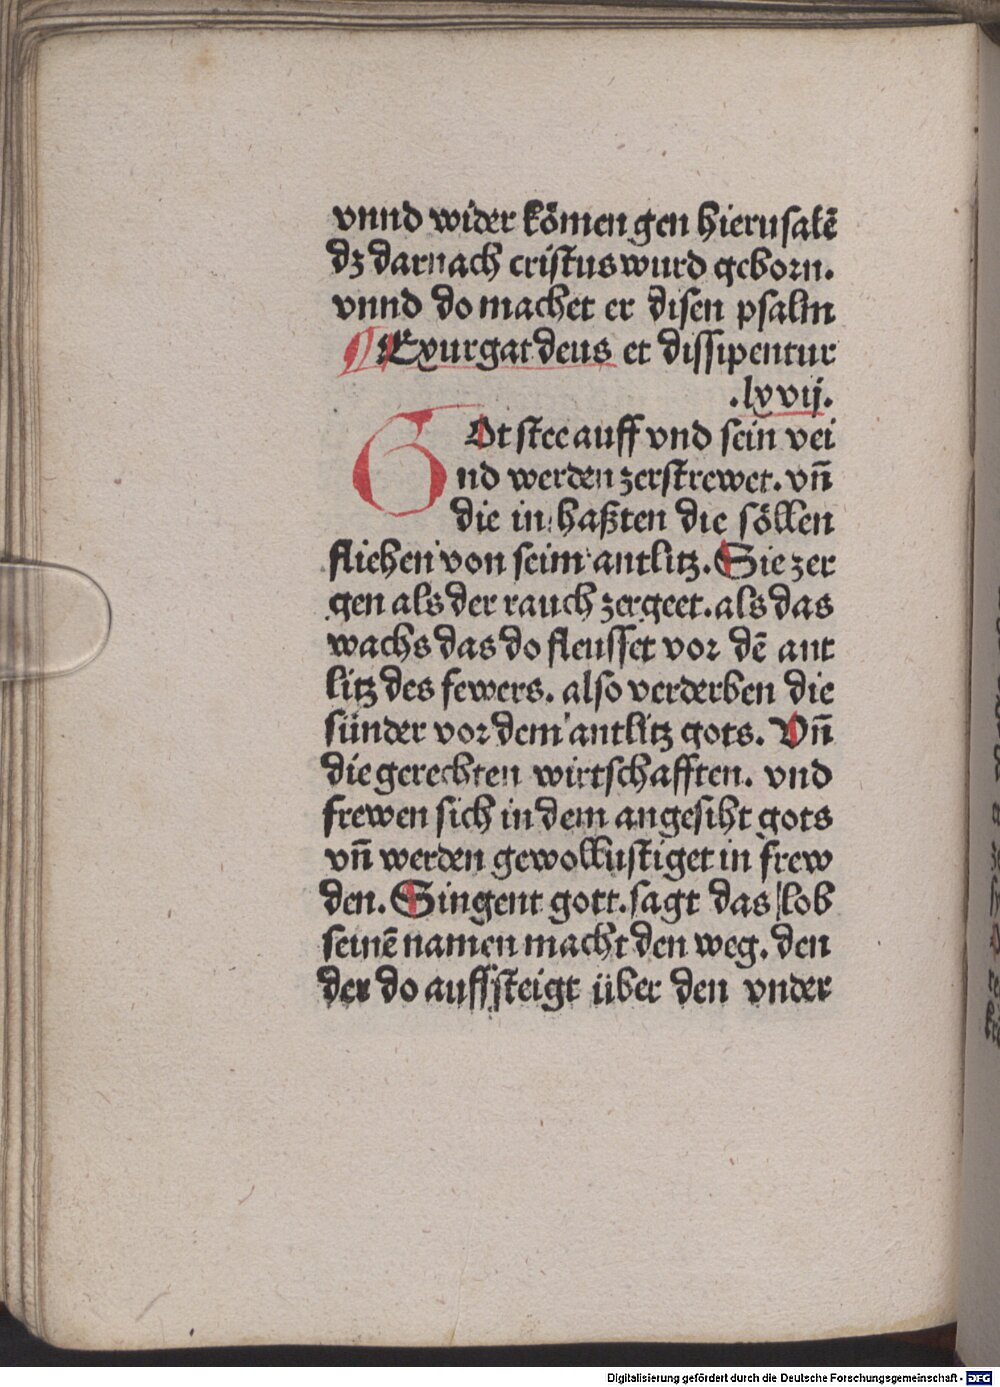 vnnd wider kömen gen hierusalē
dz darnach cristus wurd geborn.
vnnd do machet er disen psalm
¶ Exurgat deus et dissipentur
.lxvij.
GOt stee auff vnd sein vei
nd werden zerstrewet. vn̄
die in haßten die söllen
fliehen von seim antlitz. Sie zer
gen als der rauch zergeet. als das
wachs das do fleusset vor dē ant
litz des fewers. also verderben die
sünder vor dem antlitz gots. Vn̄
die gerechten wirtschafften. vnd
frewen sich in dem angesiht gots
vn̄ werden gewollustiget in frew
den. Singent gott. sagt das lob
seinē namen macht den weg. den
der do auffsteigt über den vnder
Digitalisierung gefördert durch die Deutsche Forschungsgemeinschaft - DFG